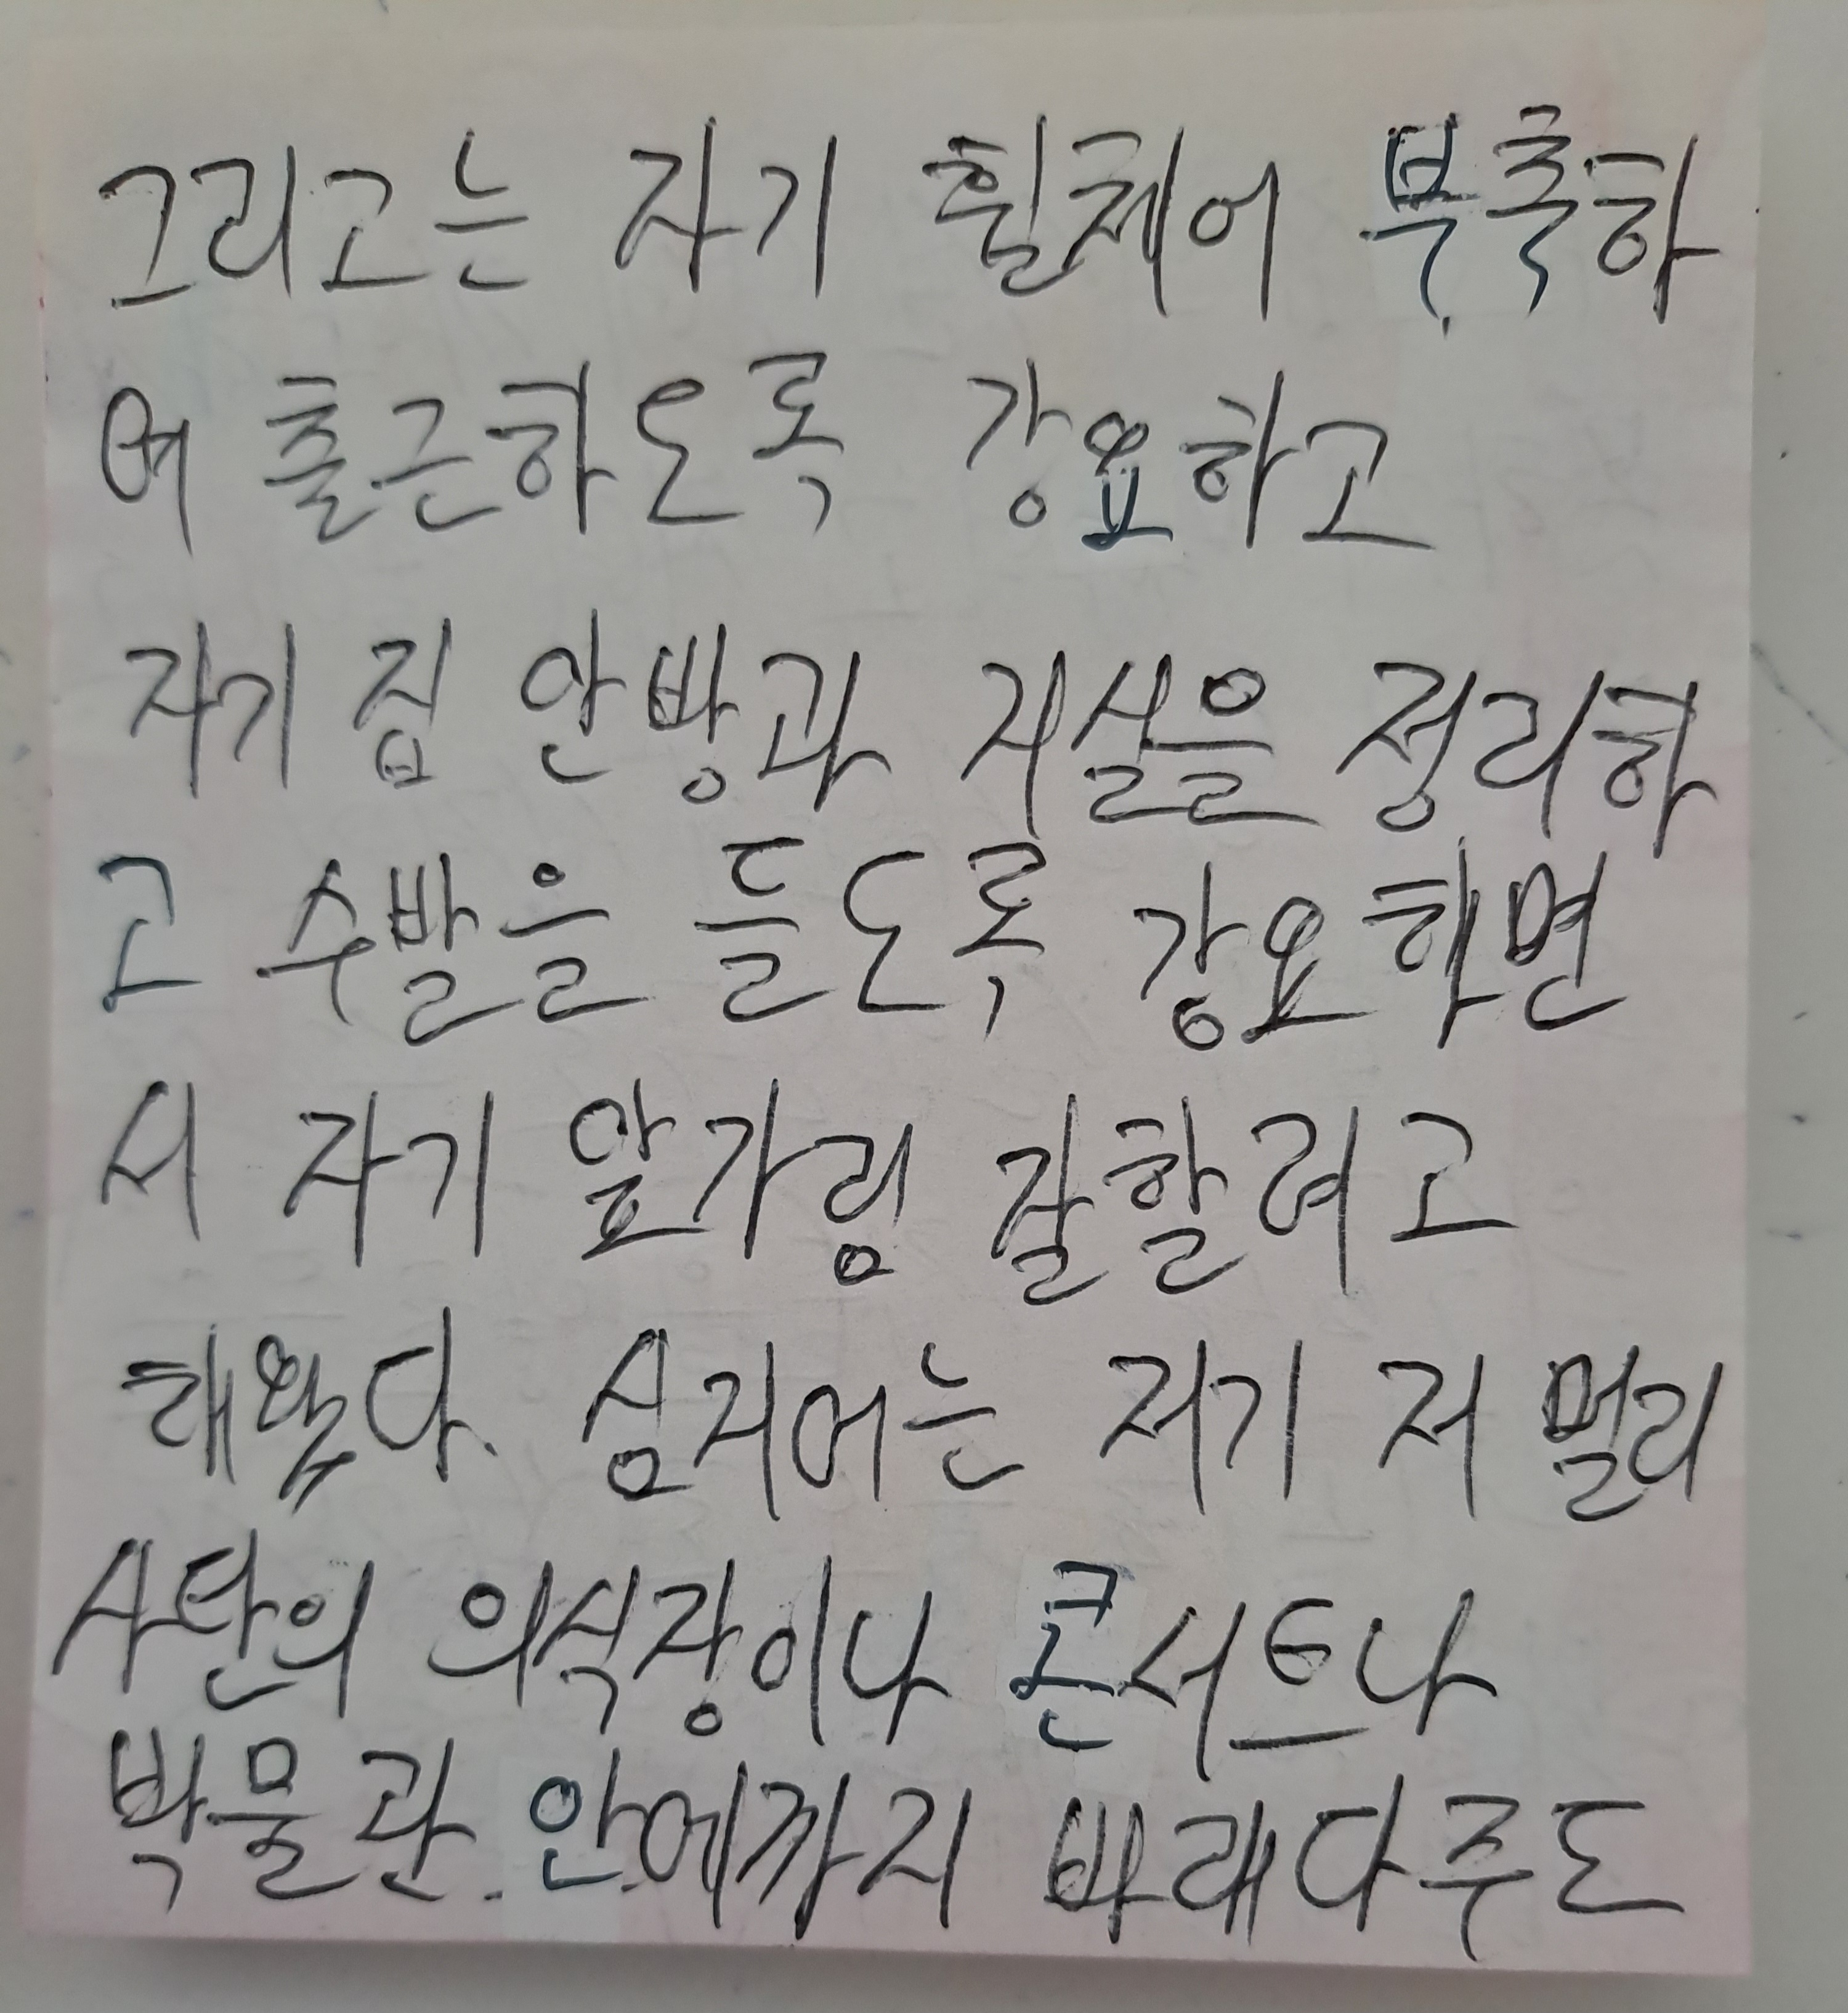 그리고는 자기 휠체어 부축하
여 출근하도록 강요하고
자기 집 안방과 거실을 정리하
고 수발을 들도록 강요하면
서 자기 앞가림 잘할려고
해왔다. 심지어는 저기 저 멀리
사탄의 의식장이나 콘서트나
박물관 안에까지 바래다주도